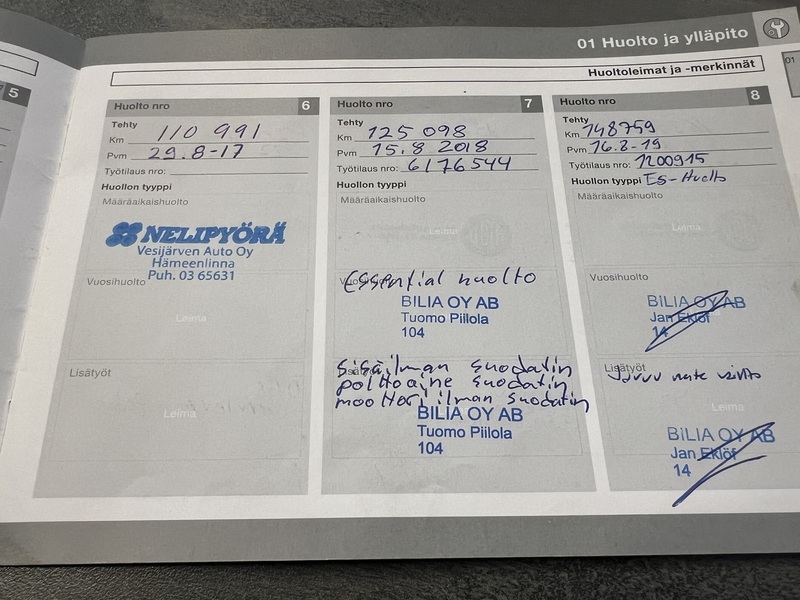 01 Huolto ja ylläpito
Huoltoleimat ja -merkinnät
01
5
Huolto nro 6
Tehty
Km 110 991
Pvm 29.8-17
Työtilaus nro:
Huollon tyyppi
Määräaikaishuolto
NELIPYÖRÄ
Vesijärven Auto Oy
Hämeenlinna
Puh. 03 65631
Vuosihuolto
Leima
Lisätyöt
Leima
Huolto nro 7
Tehty
Km 125 098
Pvm 15.8 2018
Työtilaus nro: 6176544
Huollon tyyppi
Määräaikaishuolto
Leima
Vuosihuolto
Essential huolto
BILIA OY AB
Tuomo Piilola
104
Sisäilman suodatin
polttoaine suodatin
moottori ilman suodatin
BILIA OY AB
Tuomo Piilola
104
Huolto nro 8
Tehty
Km 148759
Pvm 16.8-19
Työtilaus nro: 1200915
Huollon tyyppi Es-Huolto
Määräaikaishuolto
Leima
Vuosihuolto
BILIA OY AB
Jan Eklöf
14
Lisätyöt
Jarru neste vaihto
Leima
BILIA OY AB
Jan Eklöf
14